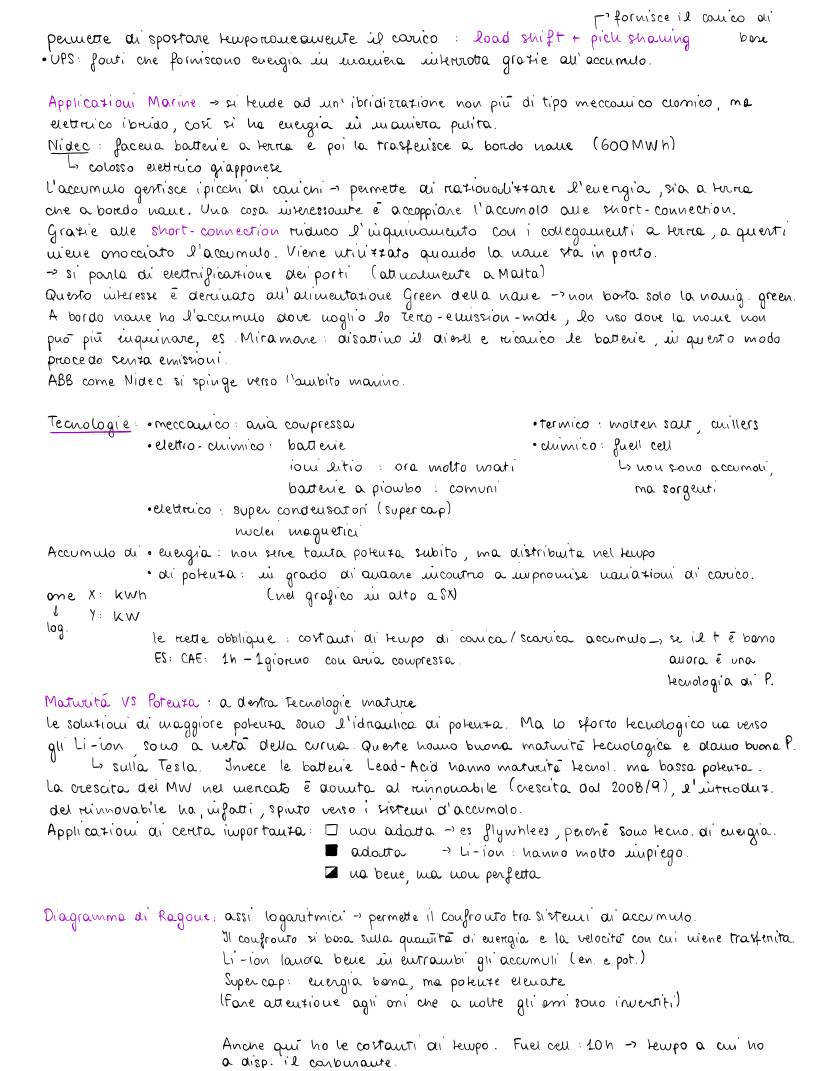 fornisce il carico di
permette di spostare temporaneamente il carico : load shift + pick shaving base
• UPS: fonti che forniscono energia in maniera interrotta grazie all' accumulo.
Applicazioni Marine → si tende ad un' ibridizzazione non più di tipo meccanico classico, ma
elettrico ibrido, così si ha energia in maniera pulita.
Nidec : faceva batterie a terra e poi la trasferisce a bordo nave (600 MWh)
↳ colosso elettrico giapponese
L'accumulo gestisce i picchi di carichi → permette di razionalizzare l'energia, sia a terra
che a bordo nave. Una cosa interessante è accoppiare l'accumolo alle short-connection.
Grazie alle short-connection riduco l'inquinamento con i collegamenti a terra, a questi
viene approcciato l'accumulo. Viene utilizzato quando la nave sta in porto.
→ si parla di elettrificazione dei porti (attualmente a Malta)
Questo interesse è derivato all'alimentazione Green della nave → non basta solo la navig. green.
A bordo nave ho l'accumulo dove voglio lo zero-emission-mode, lo uso dove la nave non
può più inquinare, es. Miramare : disattivo il diesell e ricarico le batterie, in questo modo
procedo senza emissioni.
ABB come Nidec si spinge verso l'ambito marino.
Tecnologie : • meccanico : aria compressa • termico : molten salt, chillers
• elettro-chimico : batterie • chimico : fuell cell
ioni litio : ora molto usati ↳ non sono accumoli,
batterie a piombo : comuni ma sorgenti
• elettrico : super condensatori (supercap)
nuclei magnetici
Accumulo di • energia : non serve tanta potenza subito, ma distribuita nel tempo
• di potenza : in grado di andare incontro a improvvise variazioni di carico.
asse X: kWh (nel grafico in alto a SX)
↓ Y: kW
log.
le rette obblique : costanti di tempo di carica/scarica accumulo → se il t è basso
ES: CAE: 1h – 1giorno con aria compressa. allora è una
tecnologia di P.
Maturità VS Potenza : a destra Tecnologie mature
Le soluzioni di maggiore potenza sono l'idraulica di potenza. Ma lo sforzo tecnologico va verso
gli Li-ion, sono a metà della curva. Queste hanno buona maturità tecnologica e danno buona P.
↳ sulla Tesla. Invece le batterie Lead-Acid hanno maturità tecnol. ma bassa potenza.
La crescita dei MW nel mercato è dovuta al rinnovabile (crescita dal 2008/9), l'introduz.
del rinnovabile ha, infatti, spinto verso i sistemi d'accumolo.
Applicazioni di certa importanza : □ non adatta → es flywhlees, perché sono tecno. di energia.
■ adatta → Li-ion : hanno molto impiego.
◪ va bene, ma non perfetta
Diagramma di Ragone : assi logaritmici → permette il confronto tra sistemi di accumulo.
Il confronto si basa sulla quantità di energia e la velocità con cui viene trasferita.
Li-ion lavora bene in entrambi gli accumuli (en. e pot.)
Supercap : energia bassa, ma potenze elevate
(Fare attenzione agli assi che a volte gli assi sono invertiti)
Anche qui ho le costanti di tempo. Fuel cell : 10h → tempo a cui ho
a disp. il carburante.